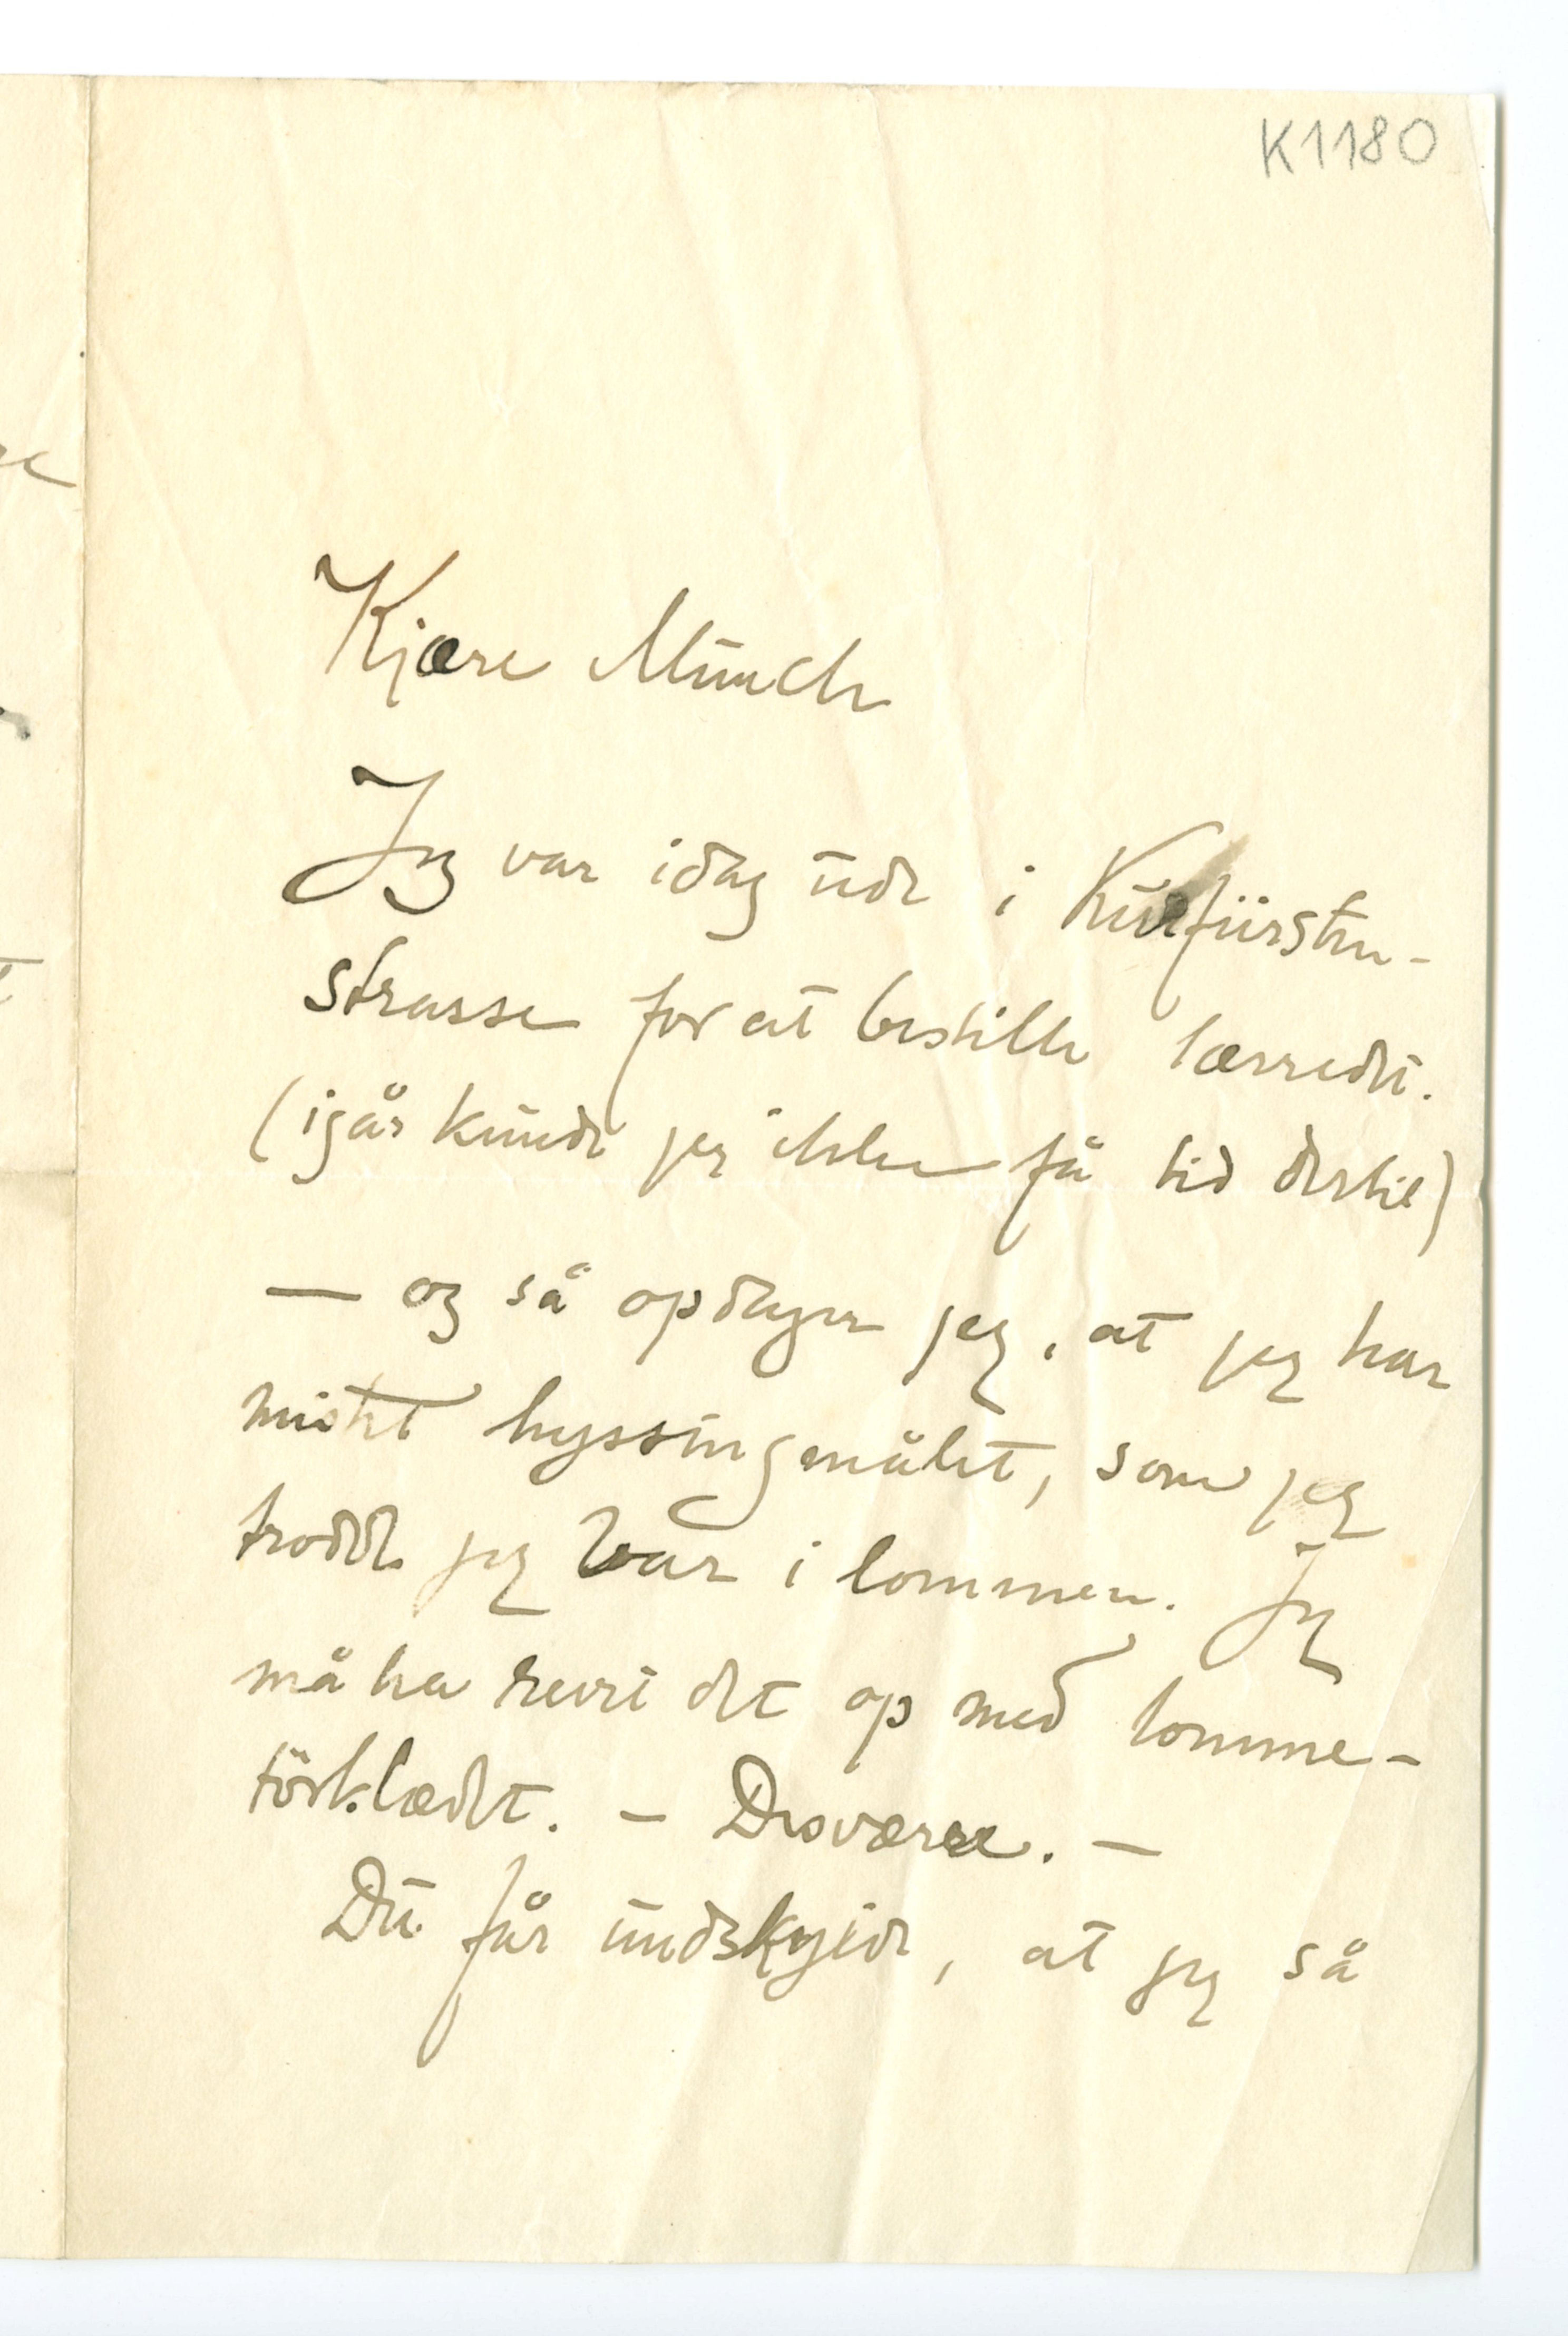 K1180
Kjære Munch
Jeg var idag ude i Kurfürsten-
strasse for at bestille lærredet.
(igår kunde jeg ikke få tid dertil)
— og så opdager jeg, at jeg har
mistet hyssingmålet, som jeg
trodde jeg bar i lommen. Jeg
må ha revet det op med lomme-
törklædet. – Desværre. –
Du får undskylde, at jeg så